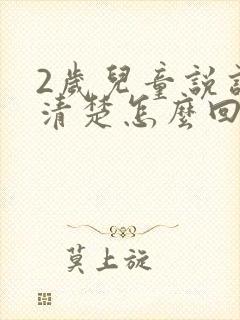 2歲兒童說
清楚怎麼回
莫上旋